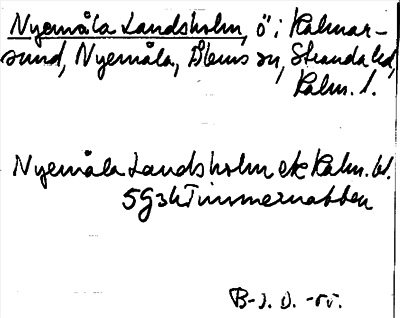 Nyemåla Landsholm, ö i Kalmar-
sund, Nyemåla, Ålems sn, Stranda hd,
Kalm. l.
Nyemåla Landsholm ek Kalm. bl.
5G3h Timmernabben
B-J. O. -55.